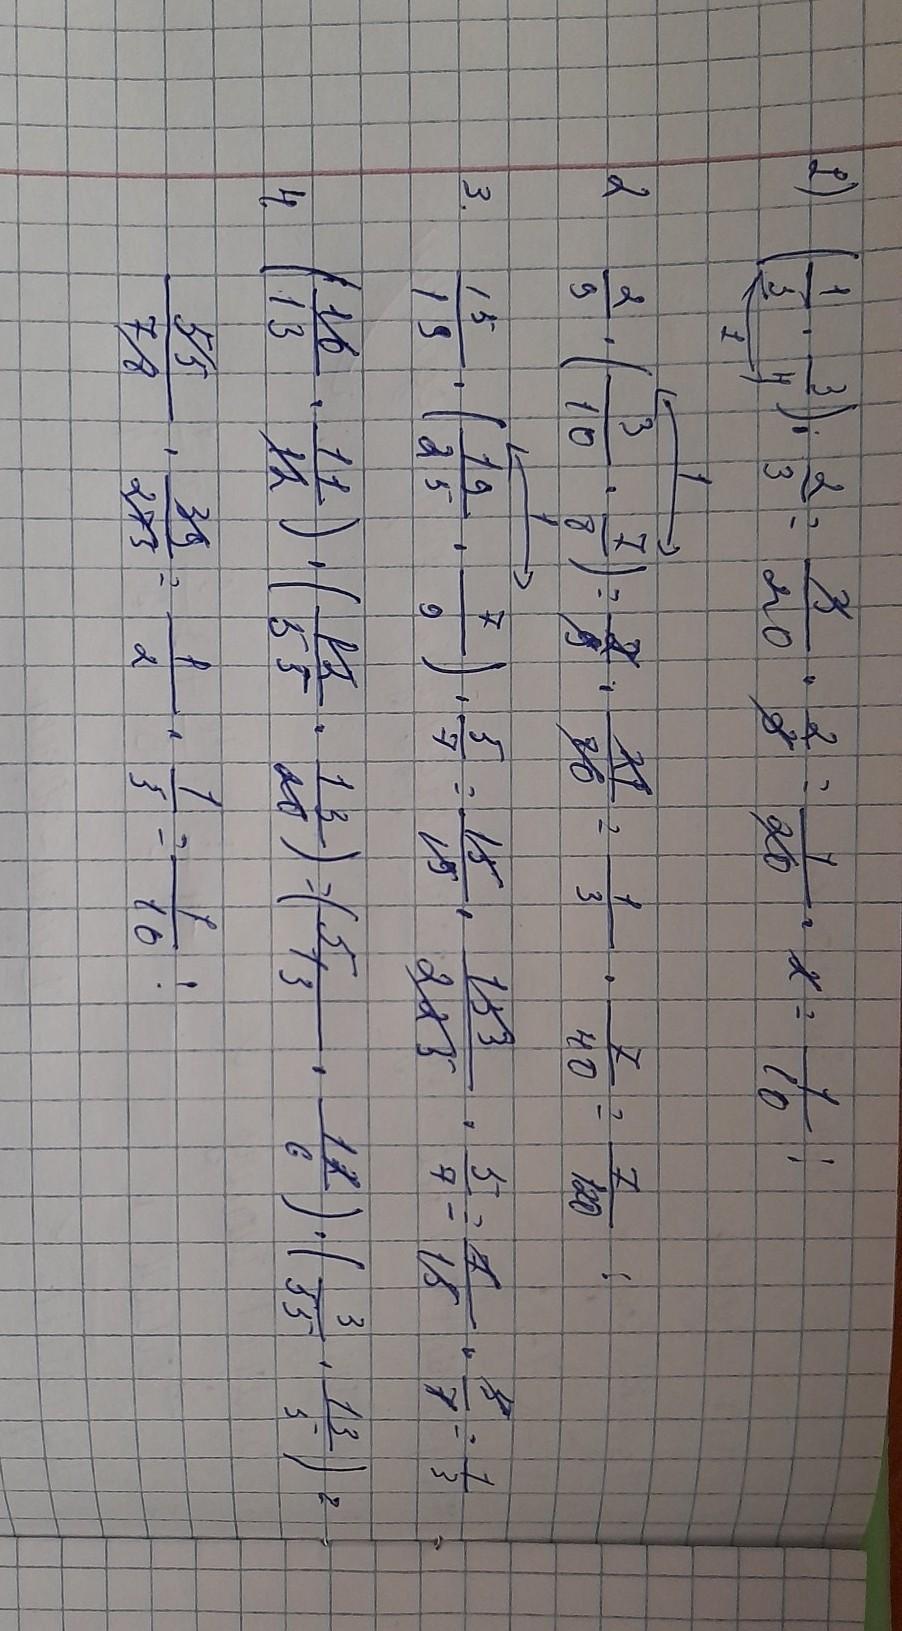 1) (1/5 · 3/4) · 2/3 = 3/20 · 2/3 = 1/20 · 2 = 1/10 ;
1
2 2/9 · (3/10 · 7/8) = 2/9 · 21/80 = 1/3 · 7/40 = 7/120 ;
1
3. 15/19 · (19/25 · 7/9) · 5/7 = · 5/7 = 7/15 · 5/7 = 1/3
1
4. (10/13 · 11/12) · (12/55 · 13/20) = (5/13 · 11/6) · (3/55 · 13/5) =
55/78 · 39/275 = 1/2 · 1/5 = 1/10 ;